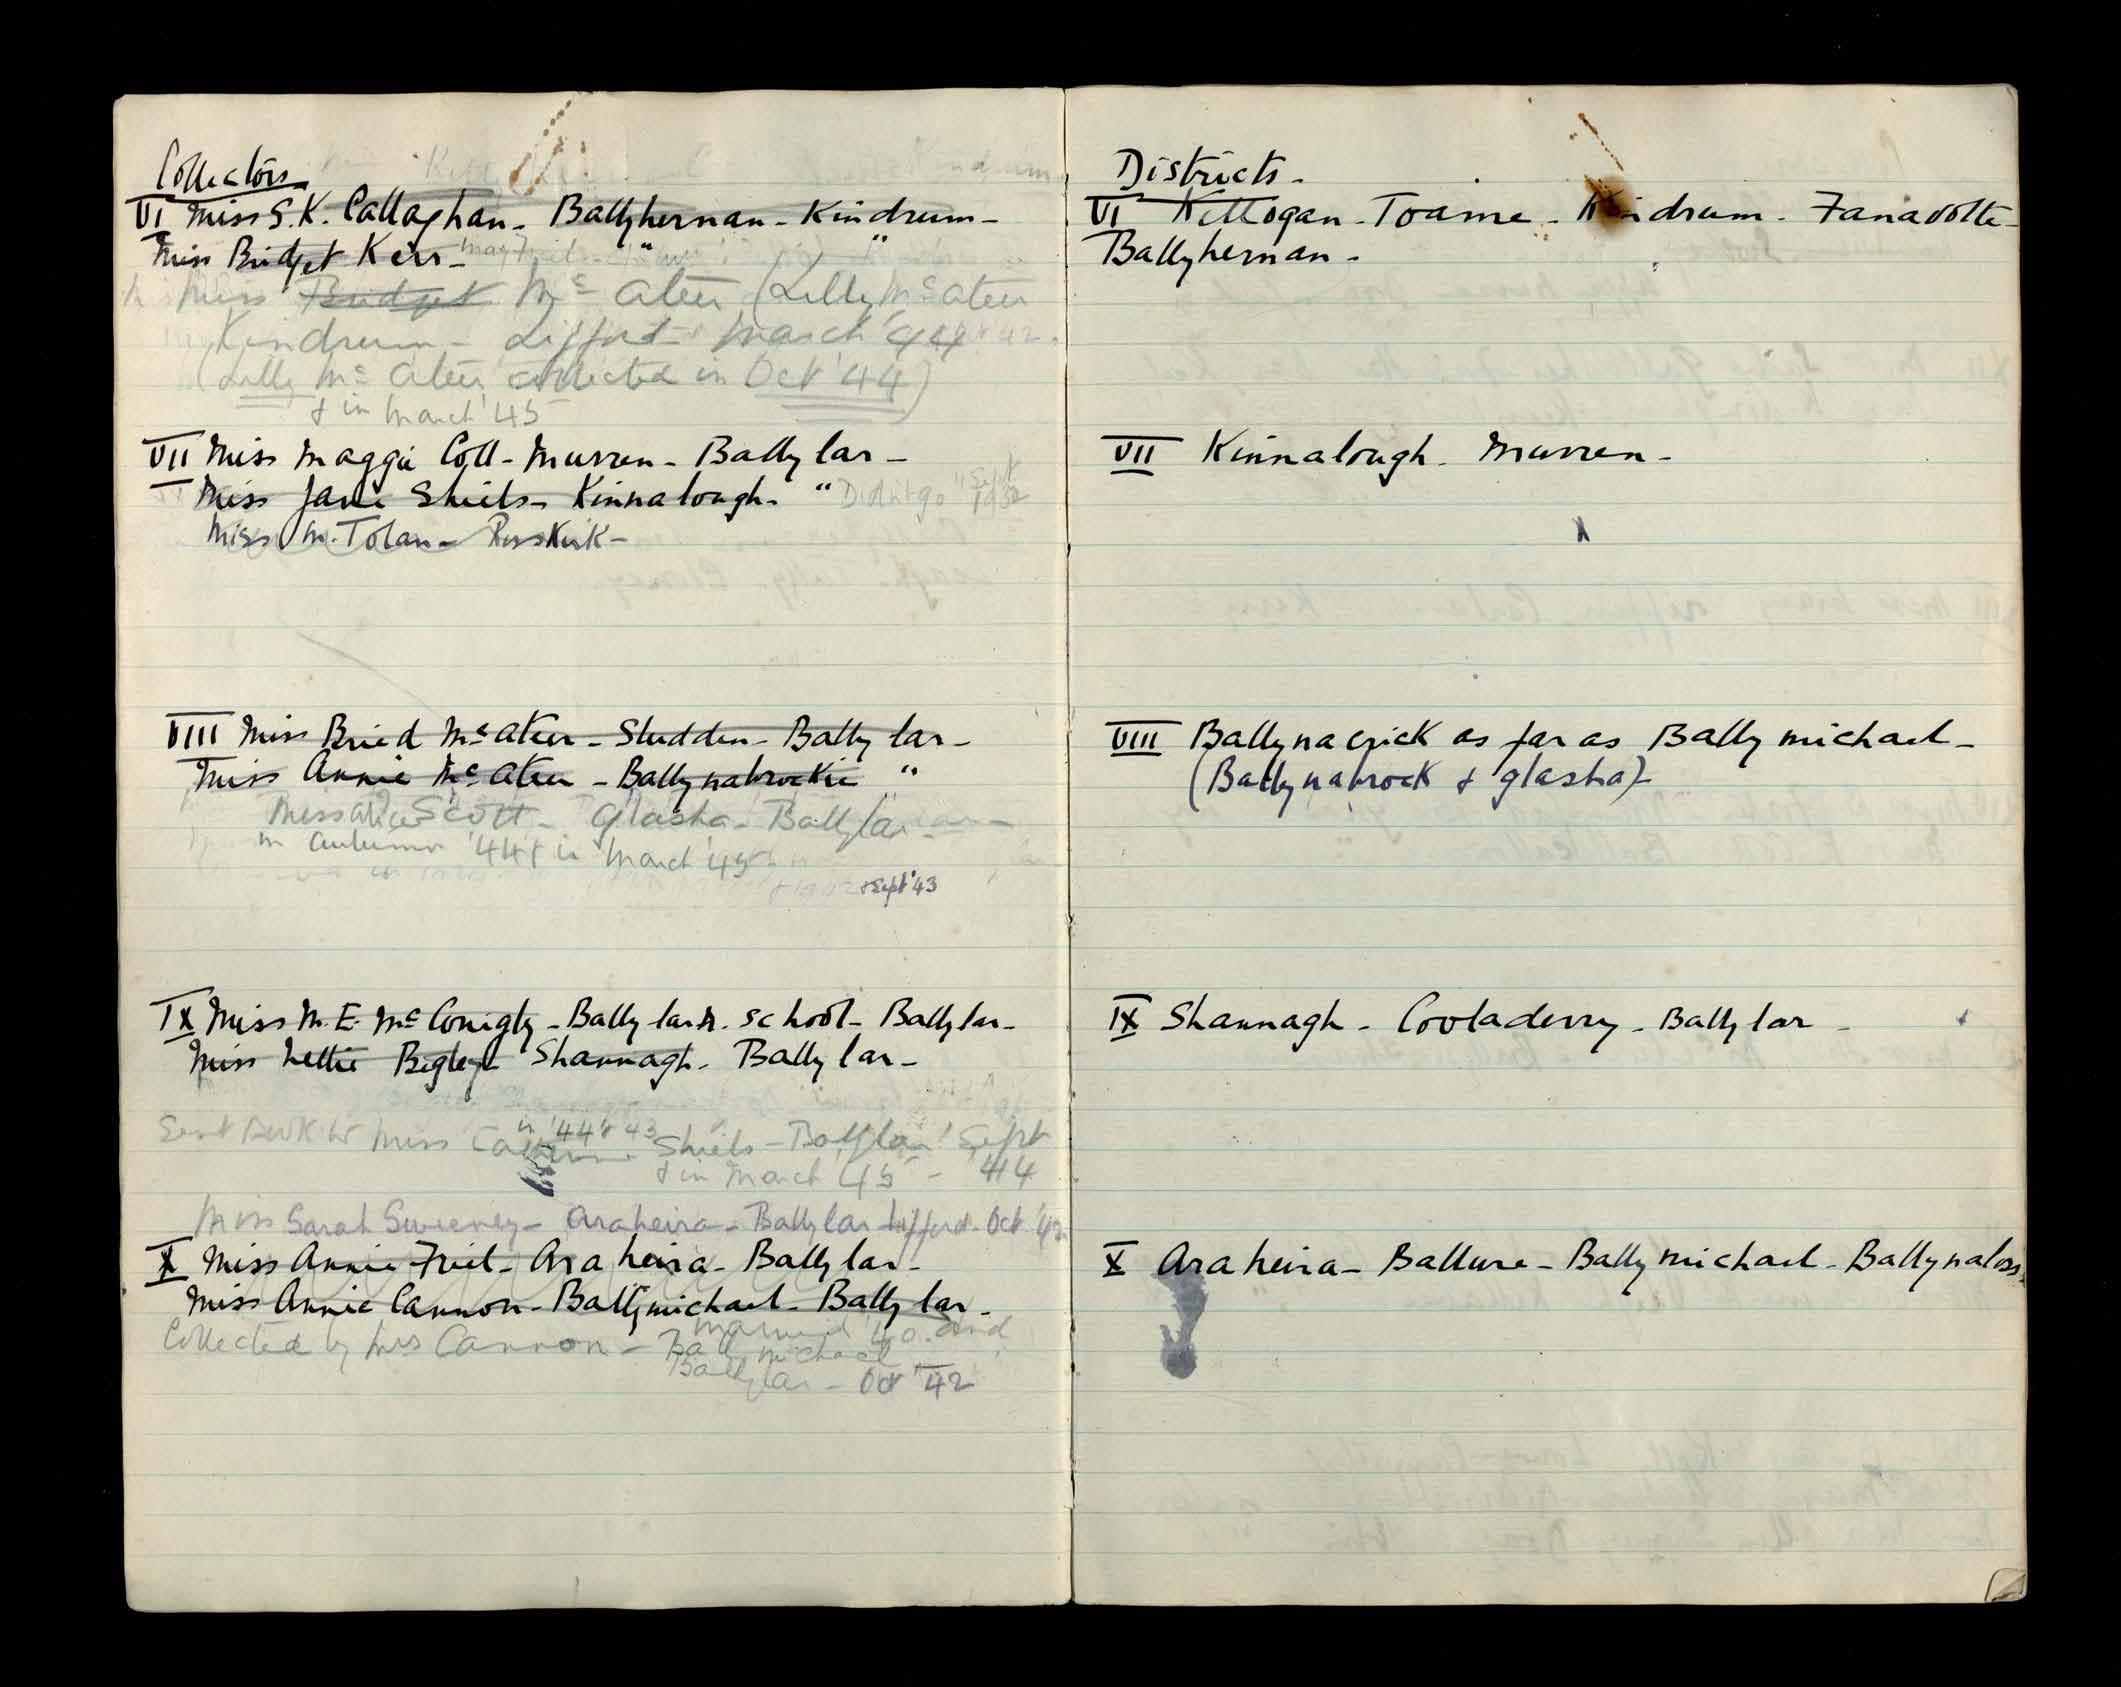 Collectors
VI Miss S.K. Callaghan - Ballyhernan - Kindrum -
Miss Bridget Kerr - " "
Miss Bridget McAteer (Lilly McAteer
Kindrum - Lifford March '44
(Lilly McAteer collected in Oct '44)
& in March '45
VII Miss Maggie Coll - Murren - Ballylar -
Miss Jane Shiels - Kinnalough - " Didn't go Sept
Miss M. Tolan - Rosskirk -
VIII Miss Bried McAteer - Sludden - Ballylar -
Miss Annie McAteer - Ballynabrockie "
Miss Alice Scott - Glasha - Ballylar -
in Autumn '44 & in March '45
& Sept '43
IX Miss M.E. McConigly - Ballylar N. School - Ballylar -
Miss Lettie Begley - Shannagh - Ballylar -
in '44 & 43
Sent Miss Shiels - Ballylar Sept
& in March 45 - '44
Miss Sarah Sweeney - Araheira - Ballylar Lifford - Oct '42
X Miss Annie Friel - Araheira - Ballylar -
Miss Annie Cannon - Ballymichael - Ballylar -
married '40 and
Collected by Mrs Cannon - Ballymichael
Ballylar - Oct '42
Districts -
VI Killogan - Toame - Kindrum - Fanavolte -
Ballyhernan -
VII Kinnalough - Murren -
VIII Ballynacrick as far as Ballymichael -
(Ballynabrock & Glasha) -
IX Shannagh - Cooladerry - Ballylar -
X Araheira - Ballure - Ballymichael - Ballynaloss